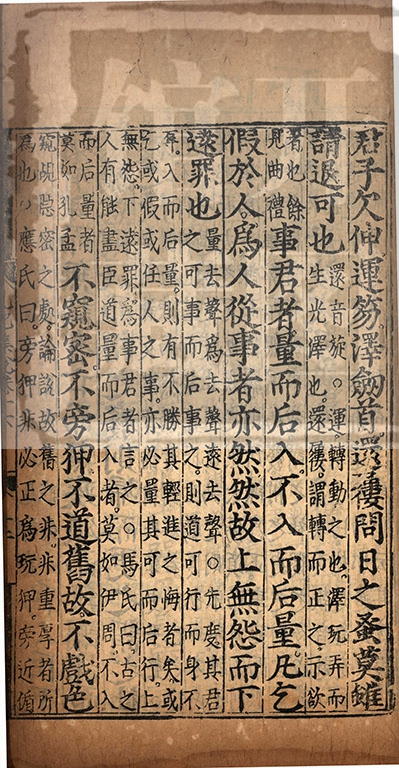 君子欠伸運笏澤劍首還屨問日之蚤莫雖
請退可也
還音旋○運轉動之也澤玩弄而
生光澤也還屨謂轉而正之示欲
者也餘
見曲禮
事君者量而后入不入而后量凡乞
假於人爲人從事者亦然然故上無怨而下
遠罪也
量去聲爲去聲遠去聲○先度其君
之可事而后事之則道可行而身不
辱入而后量則有不勝其輕進之悔者矣或
乞或假或任人之事亦必量其可而后行上
無怨下遠罪爲事君者言之○馬氏曰古之
人有能盡臣道量而后入者莫如伊周不入
而后量者
莫如孔孟
不窺密不旁狎不道舊故不戲色
窺覘隱密之處論說故舊之非非重厚者所
爲也○應氏曰旁狎非必正爲玩狎旁近循